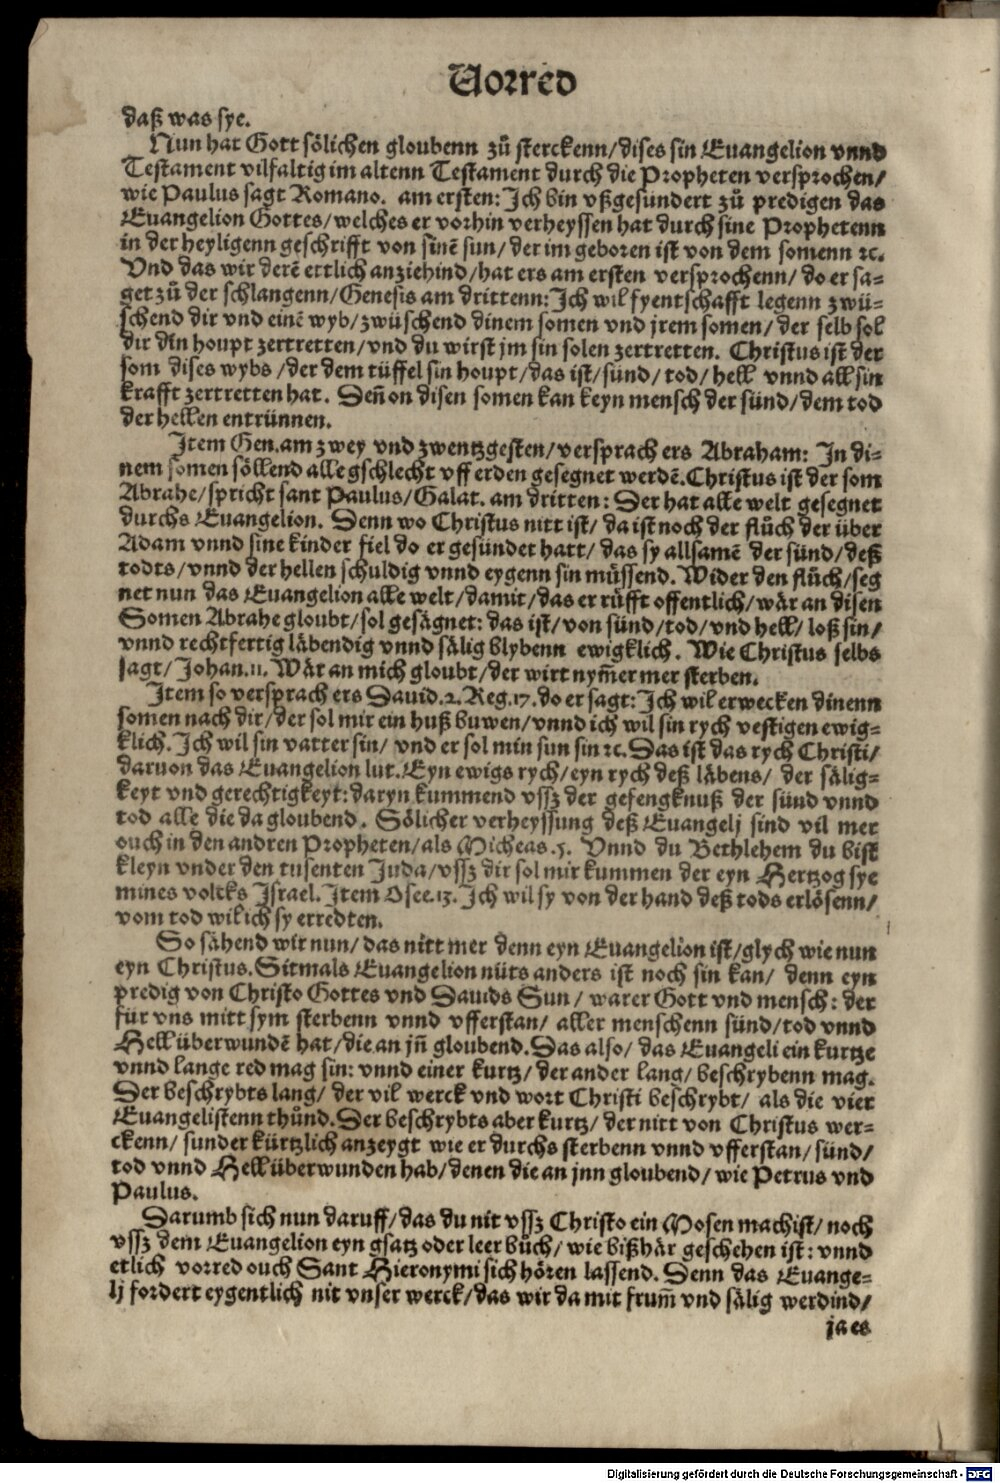 Vorred
daß was sye.
Nun hat Gott sölichen gloubenn zů sterckenn/dises sin Euangelion vnnd
Testament vilfaltig im altenn Testament durch die Propheten versprochen/
wie Paulus sagt Romano. am ersten: Ich bin vßgesundert zů predigen das
Euangelion Gottes/welches er vorhin verheyssen hat durch sine Prophetenn
in der heyligenn geschrifft von sinē sun/der im geboren ist von dem somenn ꝛc.
Vnd das wir derē ettlich anziehind/hat ers am ersten versprochenn/do er sa=
get zů der schlangenn/Genesis am drittenn: Ich wil fyentschafft legenn zwü=
schend dir vnd einē wyb/zwüschend dinem somen vnd jrem somen/der selb sol
dir din houpt zertretten/vnd du wirst jm sin solen zertretten. Christus ist der
som dises wybs/der dem tüffel sin houpt/das ist/sünd/tod/hell vnnd all sin
krafft zertretten hat. Deñ on disen somen kan keyn mensch der sünd/dem tod
der hellen entrünnen.
Item Gen. am zwey vnd zwentzgesten/versprach ers Abraham: In di=
nem somen söllend alle gschlecht vff erden gesegnet werdē. Christus ist der som
Abrahe/spricht sant Paulus/Galat. am dritten: Der hat alle welt gesegnet
durchs Euangelion. Denn wo Christus nitt ist/da ist noch der flůch der über
Adam vnnd sine kinder fiel do er gesündet hatt/das sy allsamē der sünd/deß
todts/vnnd der hellen schuldig vnnd eygenn sin müssend. Wider den flůch/seg
net nun das Euangelion alle welt/damit/das er rüfft offentlich/wär an disen
Somen Abrahe gloubt/sol gesägnet: das ist/von sünd/tod/vnd hell/loß sin/
vnnd rechtfertig läbendig vnnd sälig blybenn ewigklich. Wie Christus selbs
sagt/Johan. 11. Wär an mich gloubt/der wirt nym̄er mer sterben.
Item so versprach ers Dauid. 2. Reg. 17. do er sagt: Ich wil erwecken dinenn
somen nach dir/der sol mir ein huß buwen/vnnd ich wil sin rych vestigen ewig=
klich. Ich wil sin vatter sin/vnd er sol min sun sin ꝛc. Das ist das rych Christi/
daruon das Euangelion lut. Eyn ewigs rych/eyn rych deß läbens/der sälig=
keyt vnd gerechtigkeyt: daryn kummend vssz der gefengknuß der sünd vnnd
tod alle die da gloubend. Sölicher verheyssung deß Euangelj sind vil mer
ouch in den andren Propheten/als Micheas. 5. Vnnd du Bethlehem du bist
kleyn vnder den tusenten Juda/vssz dir sol mir kummen der eyn Hertzog sye
mines volcks Israel. Item Osee. 13. Ich wil sy von der hand deß tods erlösenn/
vom tod wil ich sy erredten.
So sähend wir nun/das nitt mer denn eyn Euangelion ist/glych wie nun
eyn Christus. Sitmals Euangelion nüts anders ist noch sin kan/denn eyn
predig von Christo Gottes vnd Dauids Sun/warer Gott vnd mensch: der
für vns mitt sym sterbenn vnnd vfferstan/aller menschenn sünd/tod vnnd
Hell überwundē hat/die an jñ gloubend. Das also/das Euangeli ein kurtze
vnnd lange red mag sin: vnnd einer kurtz/der ander lang/beschrybenn mag.
Der beschrybts lang/der vil werck vnd wort Christi beschrybt/als die vier
Euangelistenn thůnd. Der beschrybts aber kurtz/der nitt von Christus wer=
ckenn/sunder kürtzlich anzeygt wie er durchs sterbenn vnnd vfferstan/sünd/
tod vnnd Hell überwunden hab/denen die an jnn gloubend/wie Petrus vnd
Paulus.
Darumb sich nun daruff/das du nit vssz Christo ein Mosen machist/noch
vssz dem Euangelion eyn gsatz oder leer bůch/wie bißhär geschehen ist: vnnd
etlich vorred ouch Sant Hieronymi sich hören lassend. Denn das Euange=
lj fordert eygentlich nit vnser werck/das wir da mit frum̄ vnd sälig werdind/
ja es
Digitalisierung gefördert durch die Deutsche Forschungsgemeinschaft - DFG